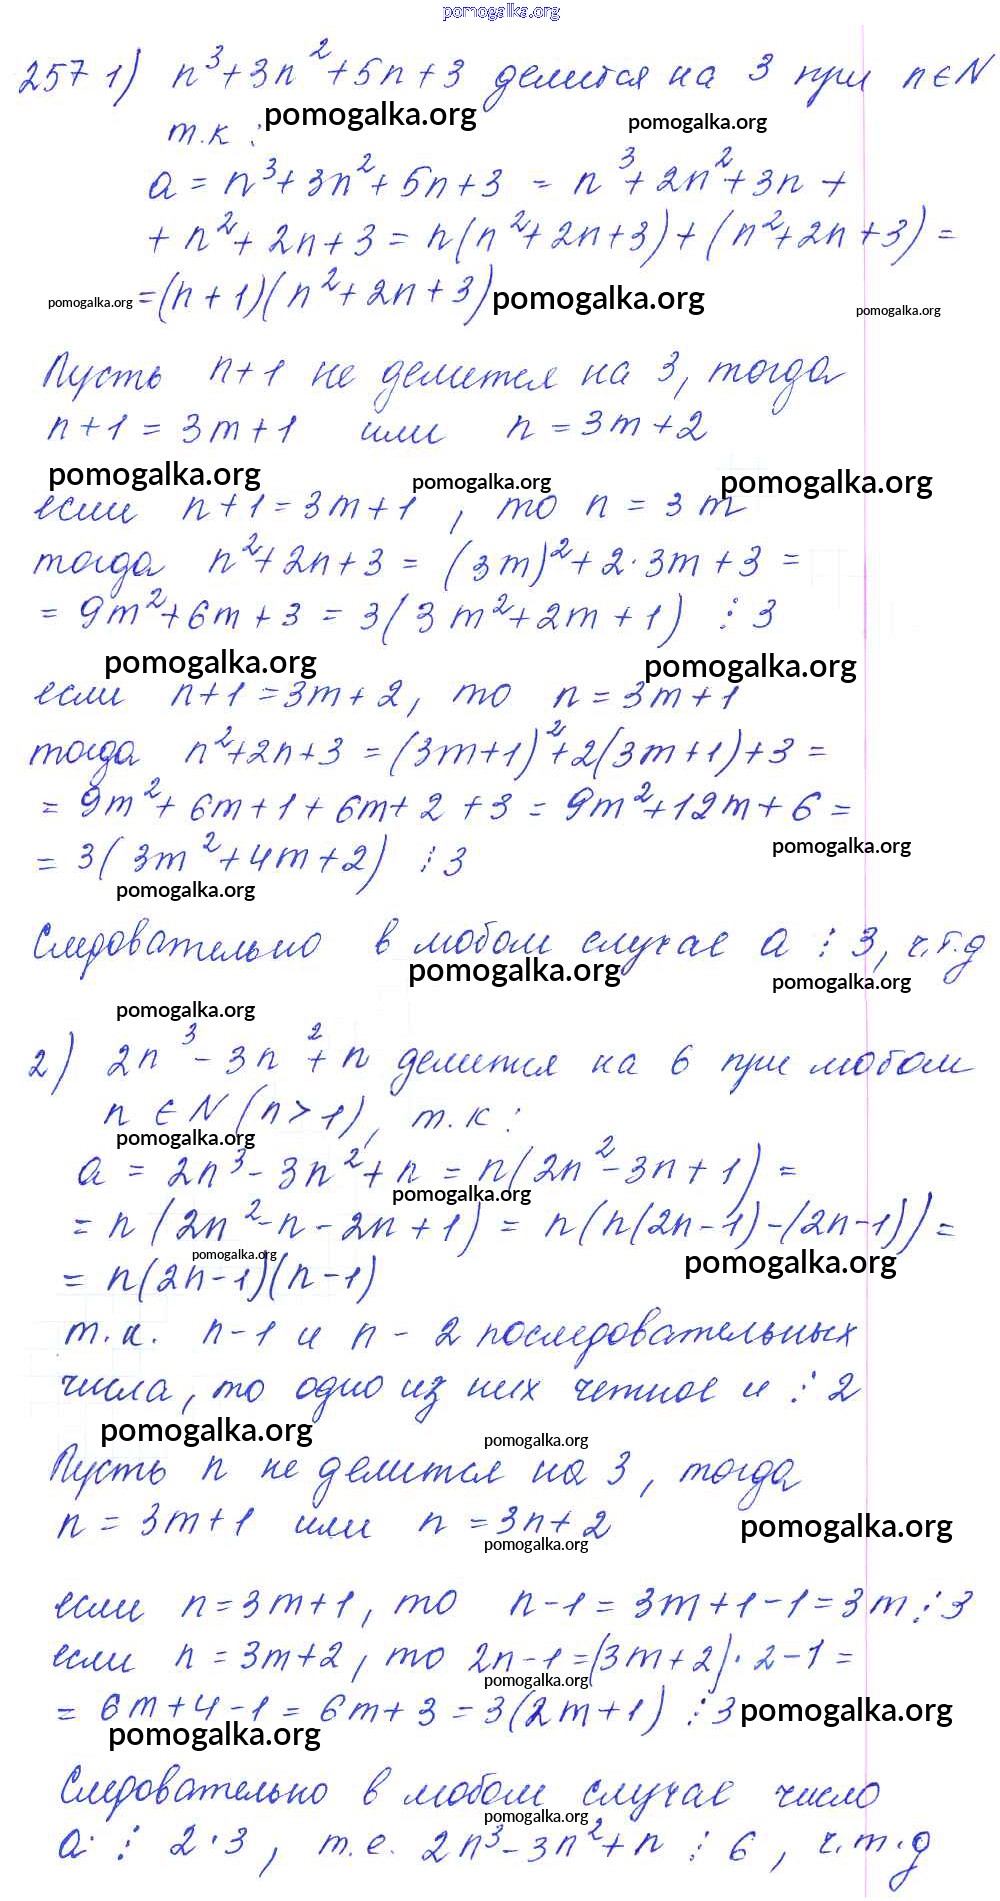 pomogalka.org
257 1) n³+3n²+5n+3 делится на 3 при n∈N
pomogalka.org
pomogalka.org
т.к :
a = n³+3n²+5n+3 = n³+2n²+3n +
+ n²+2n+3 = n(n²+2n+3)+(n²+2n+3) =
=(n+1)(n²+2n+3)
pomogalka.org
pomogalka.org
pomogalka.org
Пусть n+1 не делится на 3, тогда
n+1 = 3m+1 или n = 3m+2
pomogalka.org
pomogalka.org
pomogalka.org
если n+1=3m+1 , то n = 3m
тогда n²+2n+3 = (3m)²+2·3m+3 =
= 9m²+6m+3 = 3(3m²+2m+1) ⋮ 3
pomogalka.org
pomogalka.org
если n+1=3m+2, то n=3m+1
тогда n²+2n+3 =(3m+1)²+2(3m+1)+3 =
= 9m²+6m+1+6m+2+3 = 9m²+12m+6 =
pomogalka.org
= 3(3m²+4m+2) ⋮ 3
pomogalka.org
Следовательно в любом случае a ⋮ 3, ч.т.д
pomogalka.org
pomogalka.org
pomogalka.org
2) 2n³-3n²+n делится на 6 при любом
n∈N (n>1), т.к:
pomogalka.org
a = 2n³-3n²+n = n(2n²-3n+1) =
pomogalka.org
= n(2n²-n-2n+1) = n(n(2n-1)-(2n-1)) =
pomogalka.org
pomogalka.org
= n(2n-1)(n-1)
т.к. n-1 и n - 2 последовательных
числа, то одно из них четное и ⋮ 2
pomogalka.org
pomogalka.org
Пусть n не делится на 3, тогда
n = 3m+1 или n = 3n+2
pomogalka.org
pomogalka.org
если n=3m+1, то n-1=3m+1-1=3m ⋮ 3
если n=3m+2, то 2n-1=(3m+2)·2-1=
pomogalka.org
= 6m+4-1=6m+3=3(2m+1) ⋮ 3
pomogalka.org
pomogalka.org
Следовательно в любом случае число
pomogalka.org
a ⋮ 2·3, т.е. 2n³-3n²+n ⋮ 6, ч.т.д